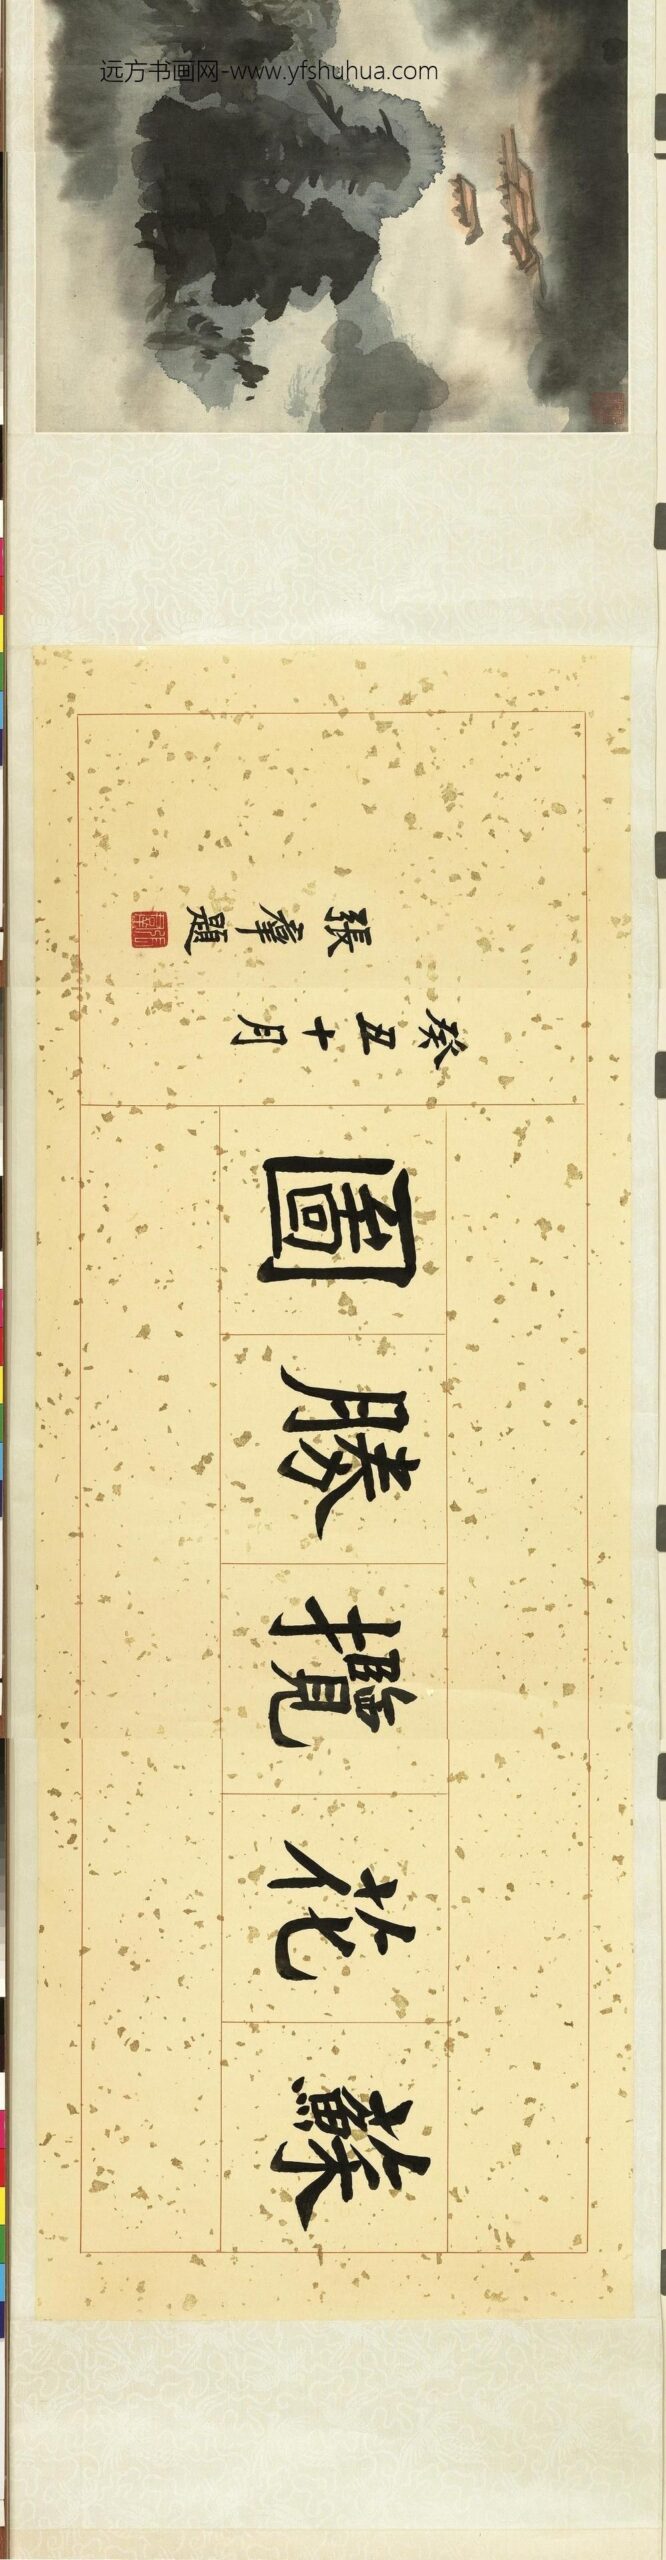 远方书画网-www.yfshuhua.com
蘇花攬勝圖
癸丑十月
張羣題